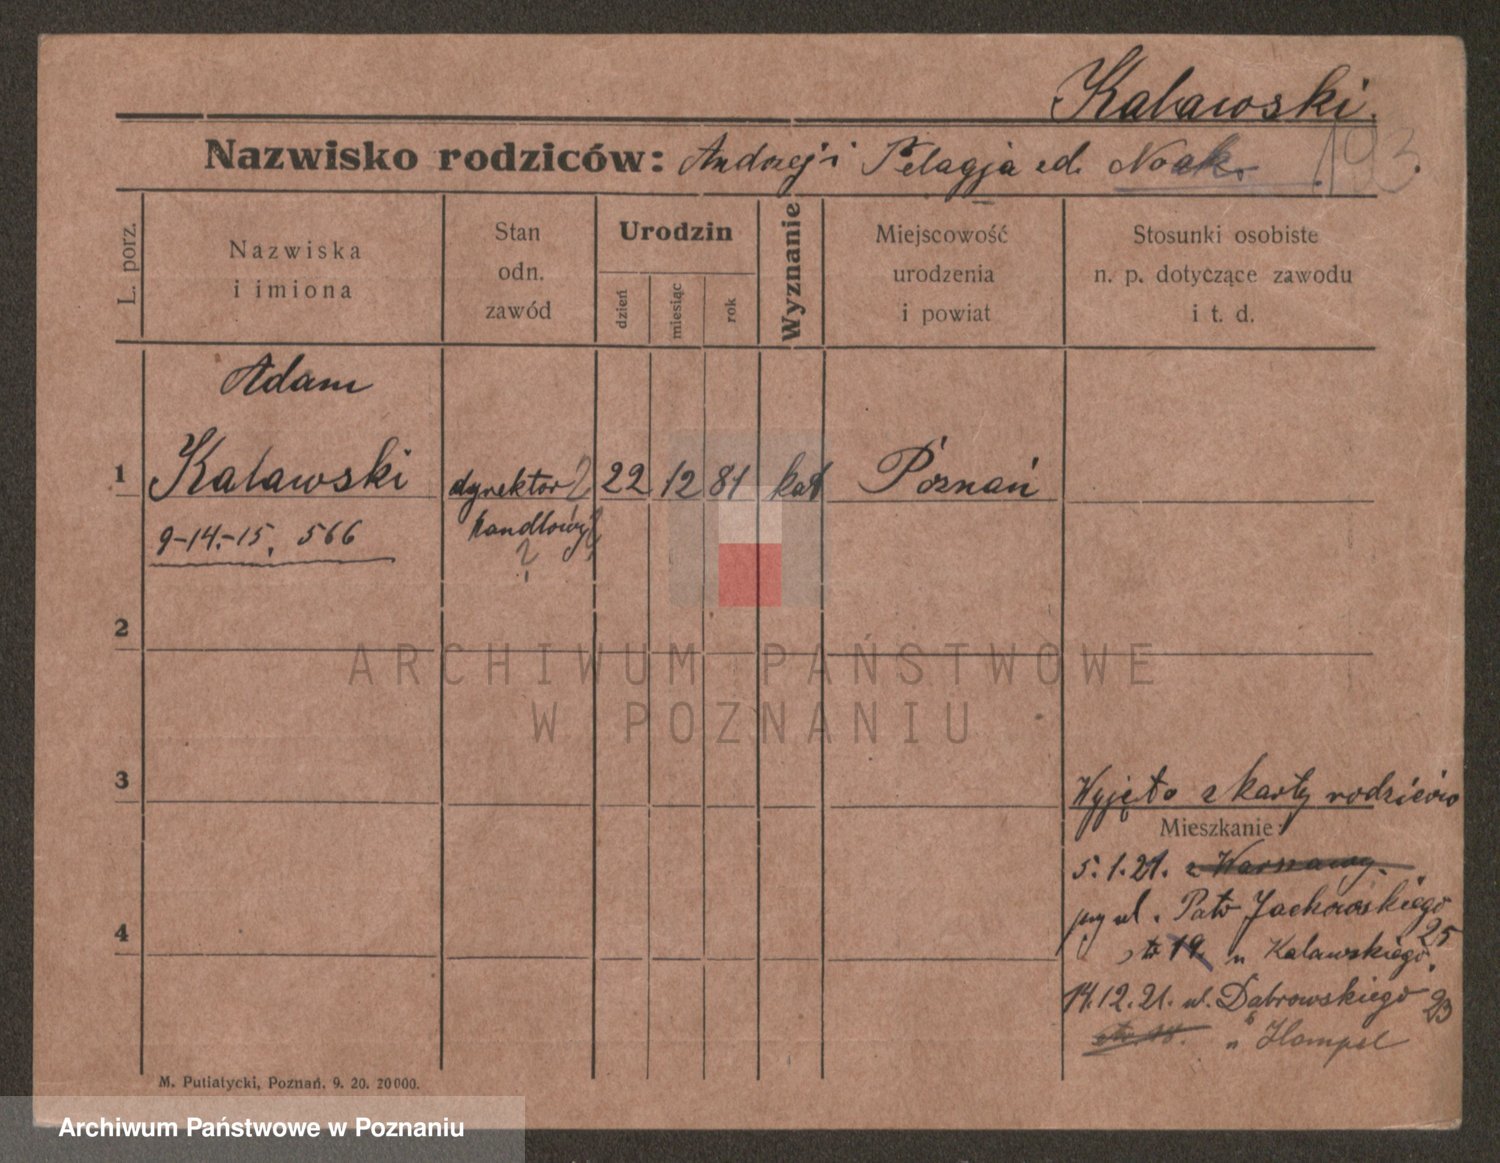 Kalawski.
Nazwisko rodziców: Andrzej i Pelagja ed. Noak.
193
L. porz.
Nazwiska
i imiona
Stan
odn.
zawód
Urodzin
dzień
miesiąc
rok
Wyznanie
Miejscowość
urodzenia
i powiat
Stosunki osobiste
n. p. dotyczące zawodu
i t. d.
Adam
1 Kalawski dyrektor 22 12 81 kat Poznań
handlowy
?
9-14.-15. 566
2
3
4
Wyjęto z karty rodziców
Mieszkanie:
5.1.21. z Warszawy.
przy ul. Patr Jackowskiego
25
19. u Kalawskiego.
14.12.21. ul. Dąbrowskiego 23
u Hampel
M. Putiatycki, Poznań. 9. 20. 20000.
ARCHIWUM PAŃSTWOWE
W POZNANIU
Archiwum Państwowe w Poznaniu